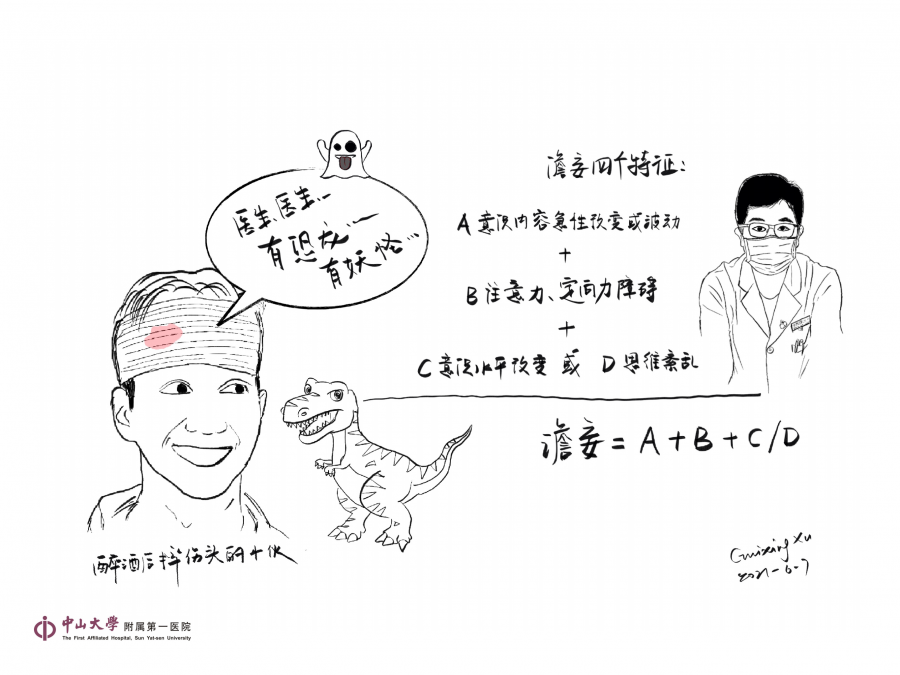 医生、医生...
有恐龙...
有妖怪...
谵妄四个特征:
A 意识内容急性改变或波动
+
B 注意力、定向力障碍
+
C 意识水平改变 或 D 思维紊乱
谵妄 = A + B + C/D
醉酒后摔伤头的小伙
Guixing Xu
2021-6-7
中山大学 附属第一医院
The First Affiliated Hospital, Sun Yat-sen University